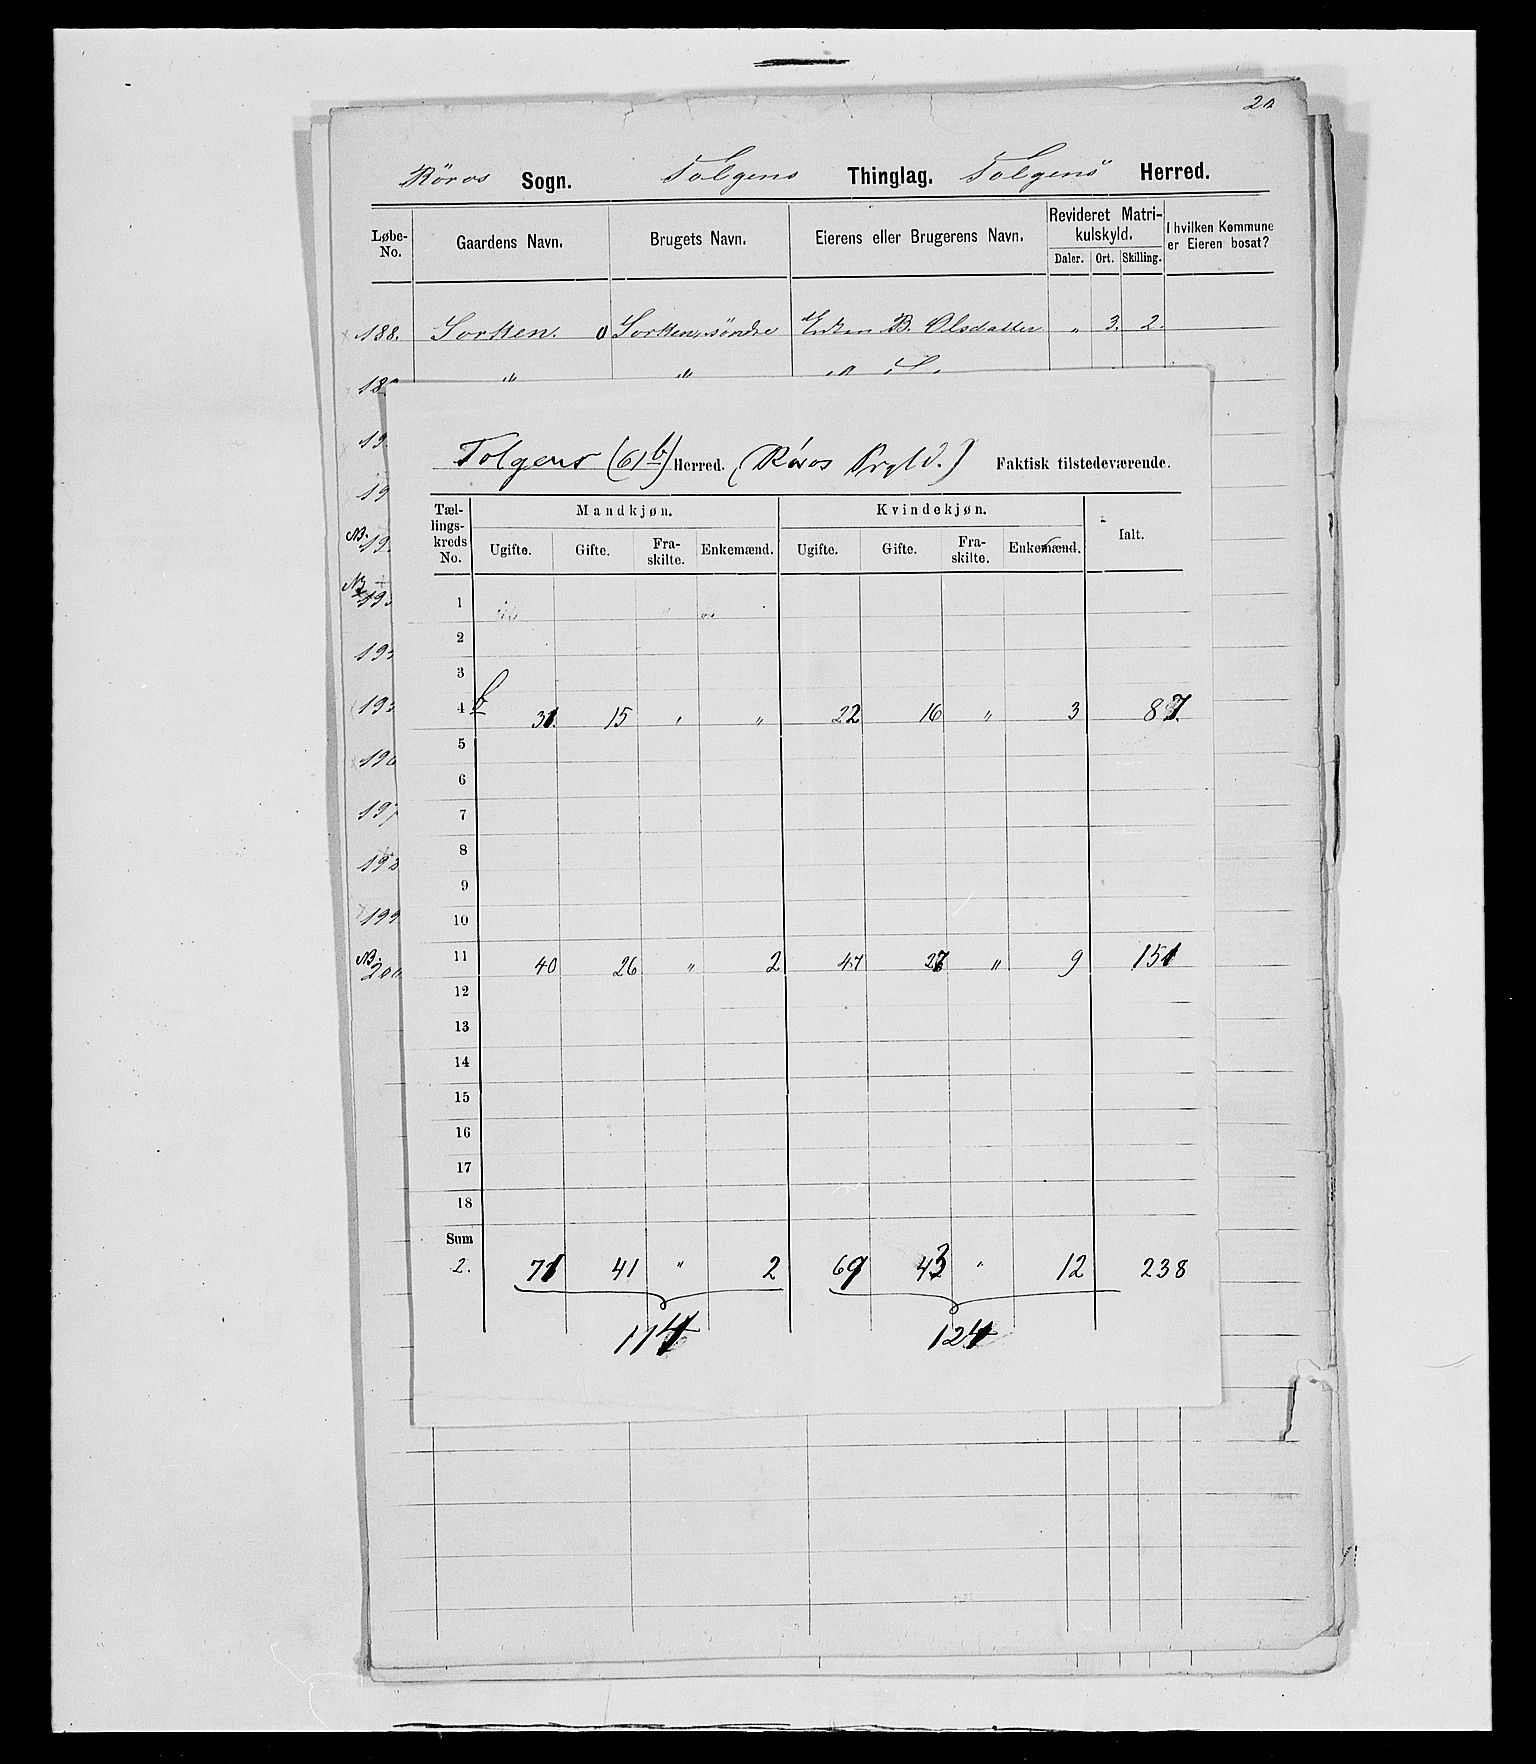 20
Röros Sogn. Tolgens Thinglag. Tolgens Herred.
Løbe-No. Gaardens Navn. Brugets Navn. Eierens eller Brugerens Navn. Revideret Matrikulskyld. Daler. Ort. Skilling. I hvilken Kommune er Eieren bosat?
188. Sorken. 0 Sorken, söndre Enken B. Olsdatter " 3. 2.
" "
Tolgens (61b) Herred. (Röros Prgld.) Faktisk tilstedeværende.
Tællingskreds No. Mandkjøn. Kvindekjøn. Ialt.
Ugifte. Gifte. Fraskilte. Enkemænd. Ugifte. Gifte. Fraskilte. Enkemænd.
1
2
3
4 b 31. 15 " " 22 16 " 3 87.
5
6
7
8
9
10
11 40 26 " 2 47 27 " 9 151
12
13
14
15
16
17
18
Sum
2. 71 41 " 2 69 43 " 12 238
114 124
NB.
NB.
197
199
NB.
200